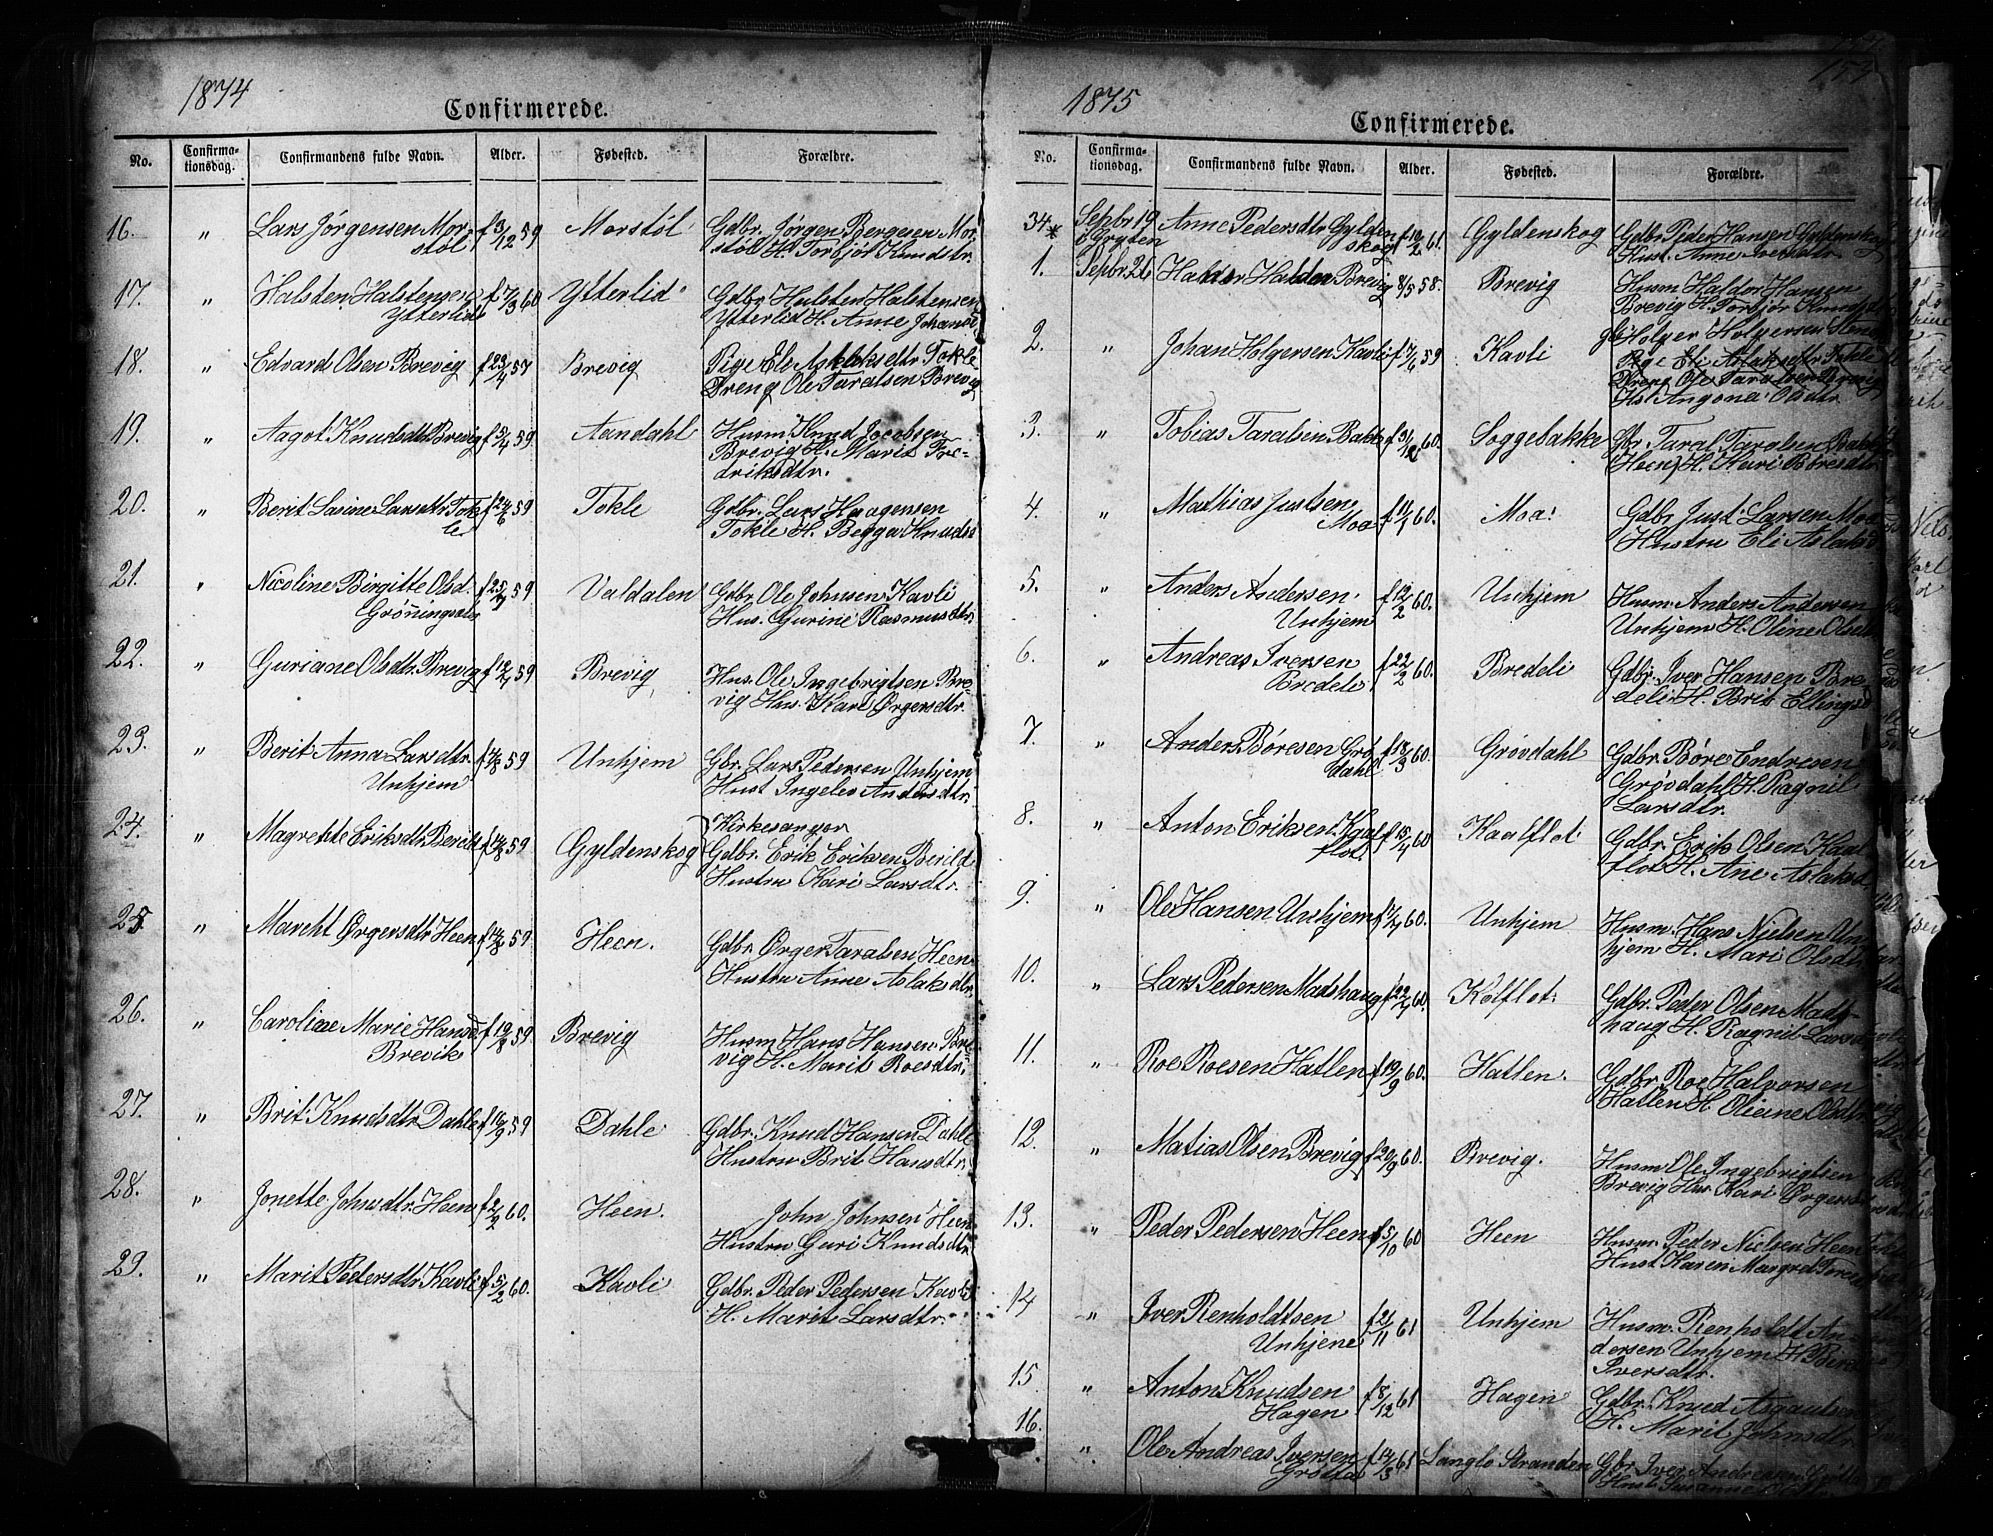 1874
Confirmerede.
No. Confirma-tionsdag. Confirmandens fulde Navn. Alder. Fødested. Forældre.
16. " Lars Jørgensen Mor- f 3/12 59 Morstøl Gdbr. Jørgen Bergesen Mor
støl støl H. Torbjør Knudsdtr.
17. " Halsten Halstensen f 17/3 60 Ytterlid Gdbr. Halsten Halstensen
Ytterlid Ytterlid H. Anne Johanne
18. " Edvard Olsen Brevig f 23/4 57 Brevig Pige Eli Aslaksdtr. Tokle
Dreng Ole Taralsen Brevig
19. " Aagot Knudsdtr. Brevig f 5/4 59 Aandahl Husm. Knud Jocobsen
Brevig H. Marit Fre-
driksdtr.
20. " Berit Lasine Larsdtr. Tok- f 24/6 59 Tokle Gdbr. Lars Haagensen
le Tokle H. Begga Knudsd
21. " Nicoline Birgitte Olsd. f 25/7 59 Valdalen Gdbr. Ole Johnsen Kavli
Grønningsæter Hus. Gurine Rasmusdtr.
22. " Guriane Olsdtr. Brevig f 12/7 59 Brevig Hus. Ole Ingebrigtsen Bre-
vig Hus. Kari Ørgersdtr.
23. " Berit Anna Larsdtr. 59 Unhjem Gbr. Lars Pedersen Unhjem
Unhjem Hust Ingeleo Andersdtr.
24. " Magrethe Eriksdtr. Berild 59 Gyldenskog Kirkesanger
Gdbr. Erik Eriksen Berild
Hustru Kari Larsdtr.
25. " Mareht Ørgersdtr. Heen f 14/8 59 Heen. Gdbr. Ørger Taralsen Heen
Hustru Anne Aslaksdtr.
26. " Caroline Marie Hansd f 19/8 59 Brevig Husm Hans Hansen Bre-
Brevik vig H. Marit Roesdtr.
27. " Brit Knudsdtr. Dahle f 16/9 59 Dahle Gdbr. Knud Hansen Dahle
Hustru Brit Hansdtr.
28. " Jonette Johnsdtr. Heen f 2/2 60. Heen. John Johnsen Heen
Hustru Guri Knudsdtr.
29. " Marit Pedersdtr. Kavli f 5/2 60. Kavli Gdbr. Peder Pedersen Kavli
H. Marit Larsdtr.
1875
Confirmerede.
No. Confirma-tionsdag. Confirmandens fulde Navn. Alder. Fødested. Forældre.
34* Sepbr. 19 Anne Pedersdtr. Gylden f 10/2 61. Gyldenskog Gdbr. Peder Hansen Gyldenskog
i Grytten skog Hust. Anne
1. Sepbr. 26 Haldor Haldor Brevig 8/5 58. Brevig Husm Haldor Hansen
Brevig H. Torbjør Knudsdtr
2. " Johan Holgersen Kavli f 17/6 59 Kavli Gbr. Holger Holgersen
Pige Eli Aslaksdtr Tokle
Dreng Ole Taralsen Brevig
Hst Angona Olsdtr.
3. " Tobias Taralsen Bakke f 31/12 60. Soggebakke Gbr. Taral Taralsen Bakke
(Heen) H. Kari Børesdtr.
4. " Mathias Justsen f 11/1 60. Moa. Gdbr Just Larsen Moa
Moa Hustru Eli Aslaksd
5. " Anders Andersen f 12/2 60. Unhjem Husm. Anders Andersen
Unhjem Unhjem H. Oline Olsd
6. " Andreas Iversen f 22/2 60. Bredeli Gdbr. Iver Hansen Bre-
Bredeli deli H. Brit Ellingsd
7. " Anders Børesen Grø f 18/3 60. Grøvdahl Gdbr Børe Endresen
dahl Grøvdahl H. Ragnil
Larsdtr.
8. " Anton Eriksen Kaa f 15/4 60 Kaalflot Gdbr. Erik Olsen Kaal
flot. flot H. Ane Aslaksd
9. " Ole Hansen Unhjem 60. Unhjem Husm. Hans Nielsen Un
hjem H. Mari Olsd
10. " Lars Pedersen Madshaug f 22/7 60. Kolflot Gdbr. Peder Olsen Mads-
haug H. Ragnil Larsd
11. " Roe Roesen Hatlen f 19/9 60. Hatlen. Gdbr Roe Halvorsen
Hatlen H. Oliane Olsdtr
12. " Matias Olsen Brevig f 20/9 60. Brevig. Husm Ole Ingebrigtsen
Brevig Hus. Kari Ørgersd
13. " Peder Pedersen Heen f 5/10 60 Heen Husm. Peder Nielsen Heen
Hust Karen Margrete
14 " Iver Renholdtsen f 2/11 61 Unhjem Husm. Renholdt An-
Unhjem dersen Unhjem H
Iversdtr.
15 " Anton Knudsen f 8/12 61 Hagen Gdbr. Knud Asgautsen
Hagen H. Marit Johnsdtr
16. " Ole Andreas Iversen f 14/3 61 Langlo Stranden Gbr. Iver Andreasen
Grøtta Hust. Susanne